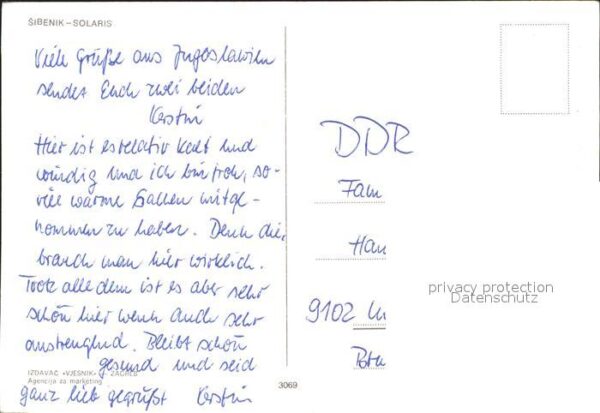 ŠIBENIK – SOLARIS
Viele Grüße aus Jugoslawien
sendet Euch zwei beiden
Kerstin
Hier ist es relativ kalt und
windig und ich bin froh, so-
viele warme Sachen mitge-
nommen zu haben. Denn die
brauch man hier wirklich.
Trotz alledem ist es aber sehr
schön hier wenn auch sehr
anstrengend. Bleibt schön
gesund und seid
IZDAVAČ »VJESNIK« – ZAGREB
Agencija za marketing
ganz lieb gegrüßt Kerstin
3069
DDR
Fam
Han
9102
privacy protection
Datenschutz